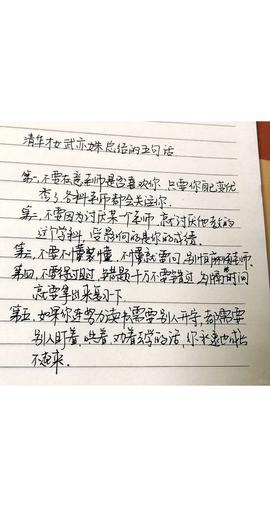 清华才女武亦姝总结的五句话
第一,不要在意老师是否喜欢你,只要你自己变优
秀了各科老师都会关注你.
第二,不要因为讨厌某个老师,就讨厌他教的
这个学科,受影响的是你的成绩.
第三,不要不懂装懂,不懂就要问,别怕麻烦老师.
第四,不要得过且过,错题千万不要错过,每隔一段时间
就要拿出来复习一下.
第五,如果你连努力读书需要别人开导,都需要
别人盯着,哄着,劝着去学的话,你永远也成长
不起来.